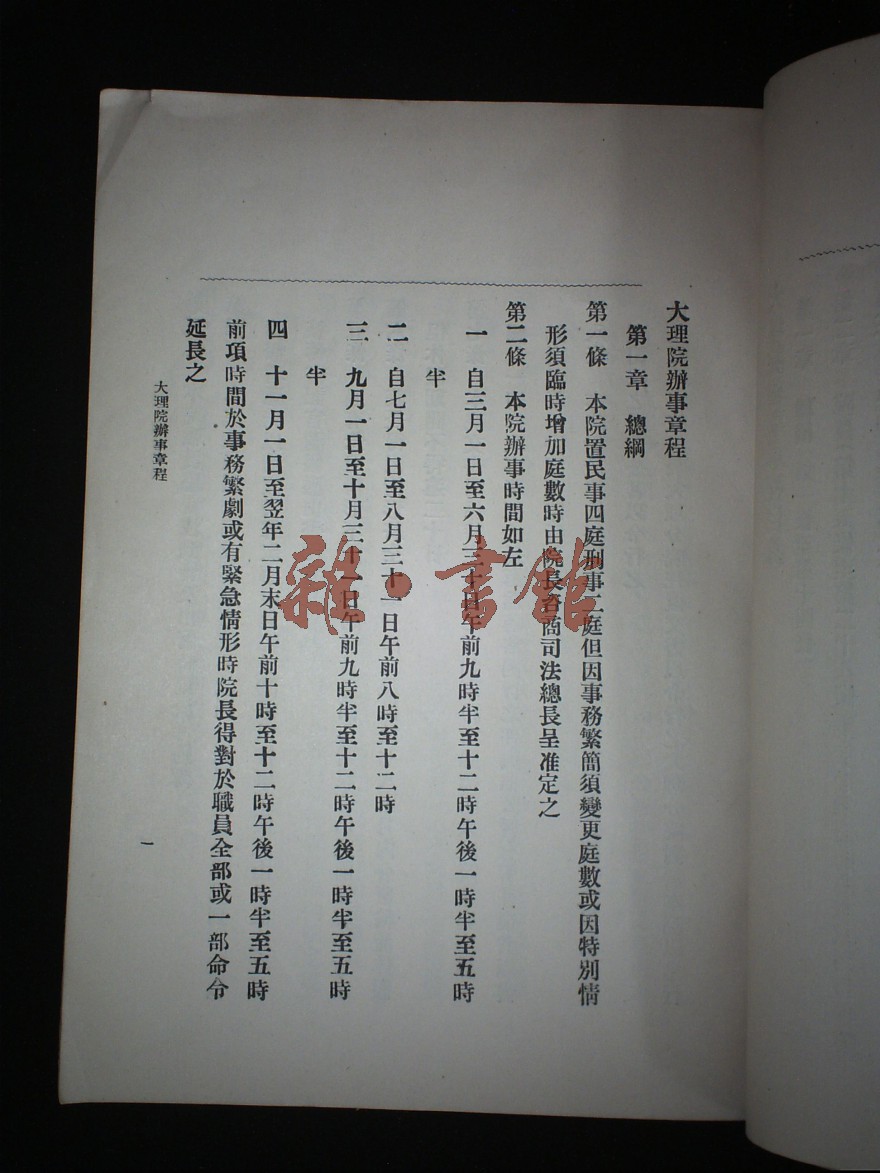 大理院辦事章程
第一章　總綱
第一條　本院置民事四庭刑事二庭但因事務繁簡須變更庭數或因特別情
形須臨時增加庭數時由院長咨商司法總長呈准定之
第二條　本院辦事時間如左
一　自三月一日至六月三十日午前九時半至十二時午後一時半至五時
半
二　自七月一日至八月三十一日午前八時至十二時
三　九月一日至十月三十一日午前九時半至十二時午後一時半至五時
半
四　十一月一日至翌年二月末日午前十時至十二時午後一時半至五時
前項時間於事務繁劇或有緊急情形時院長得對於職員全部或一部命令
延長之
大理院辦事章程
一
雜·書館